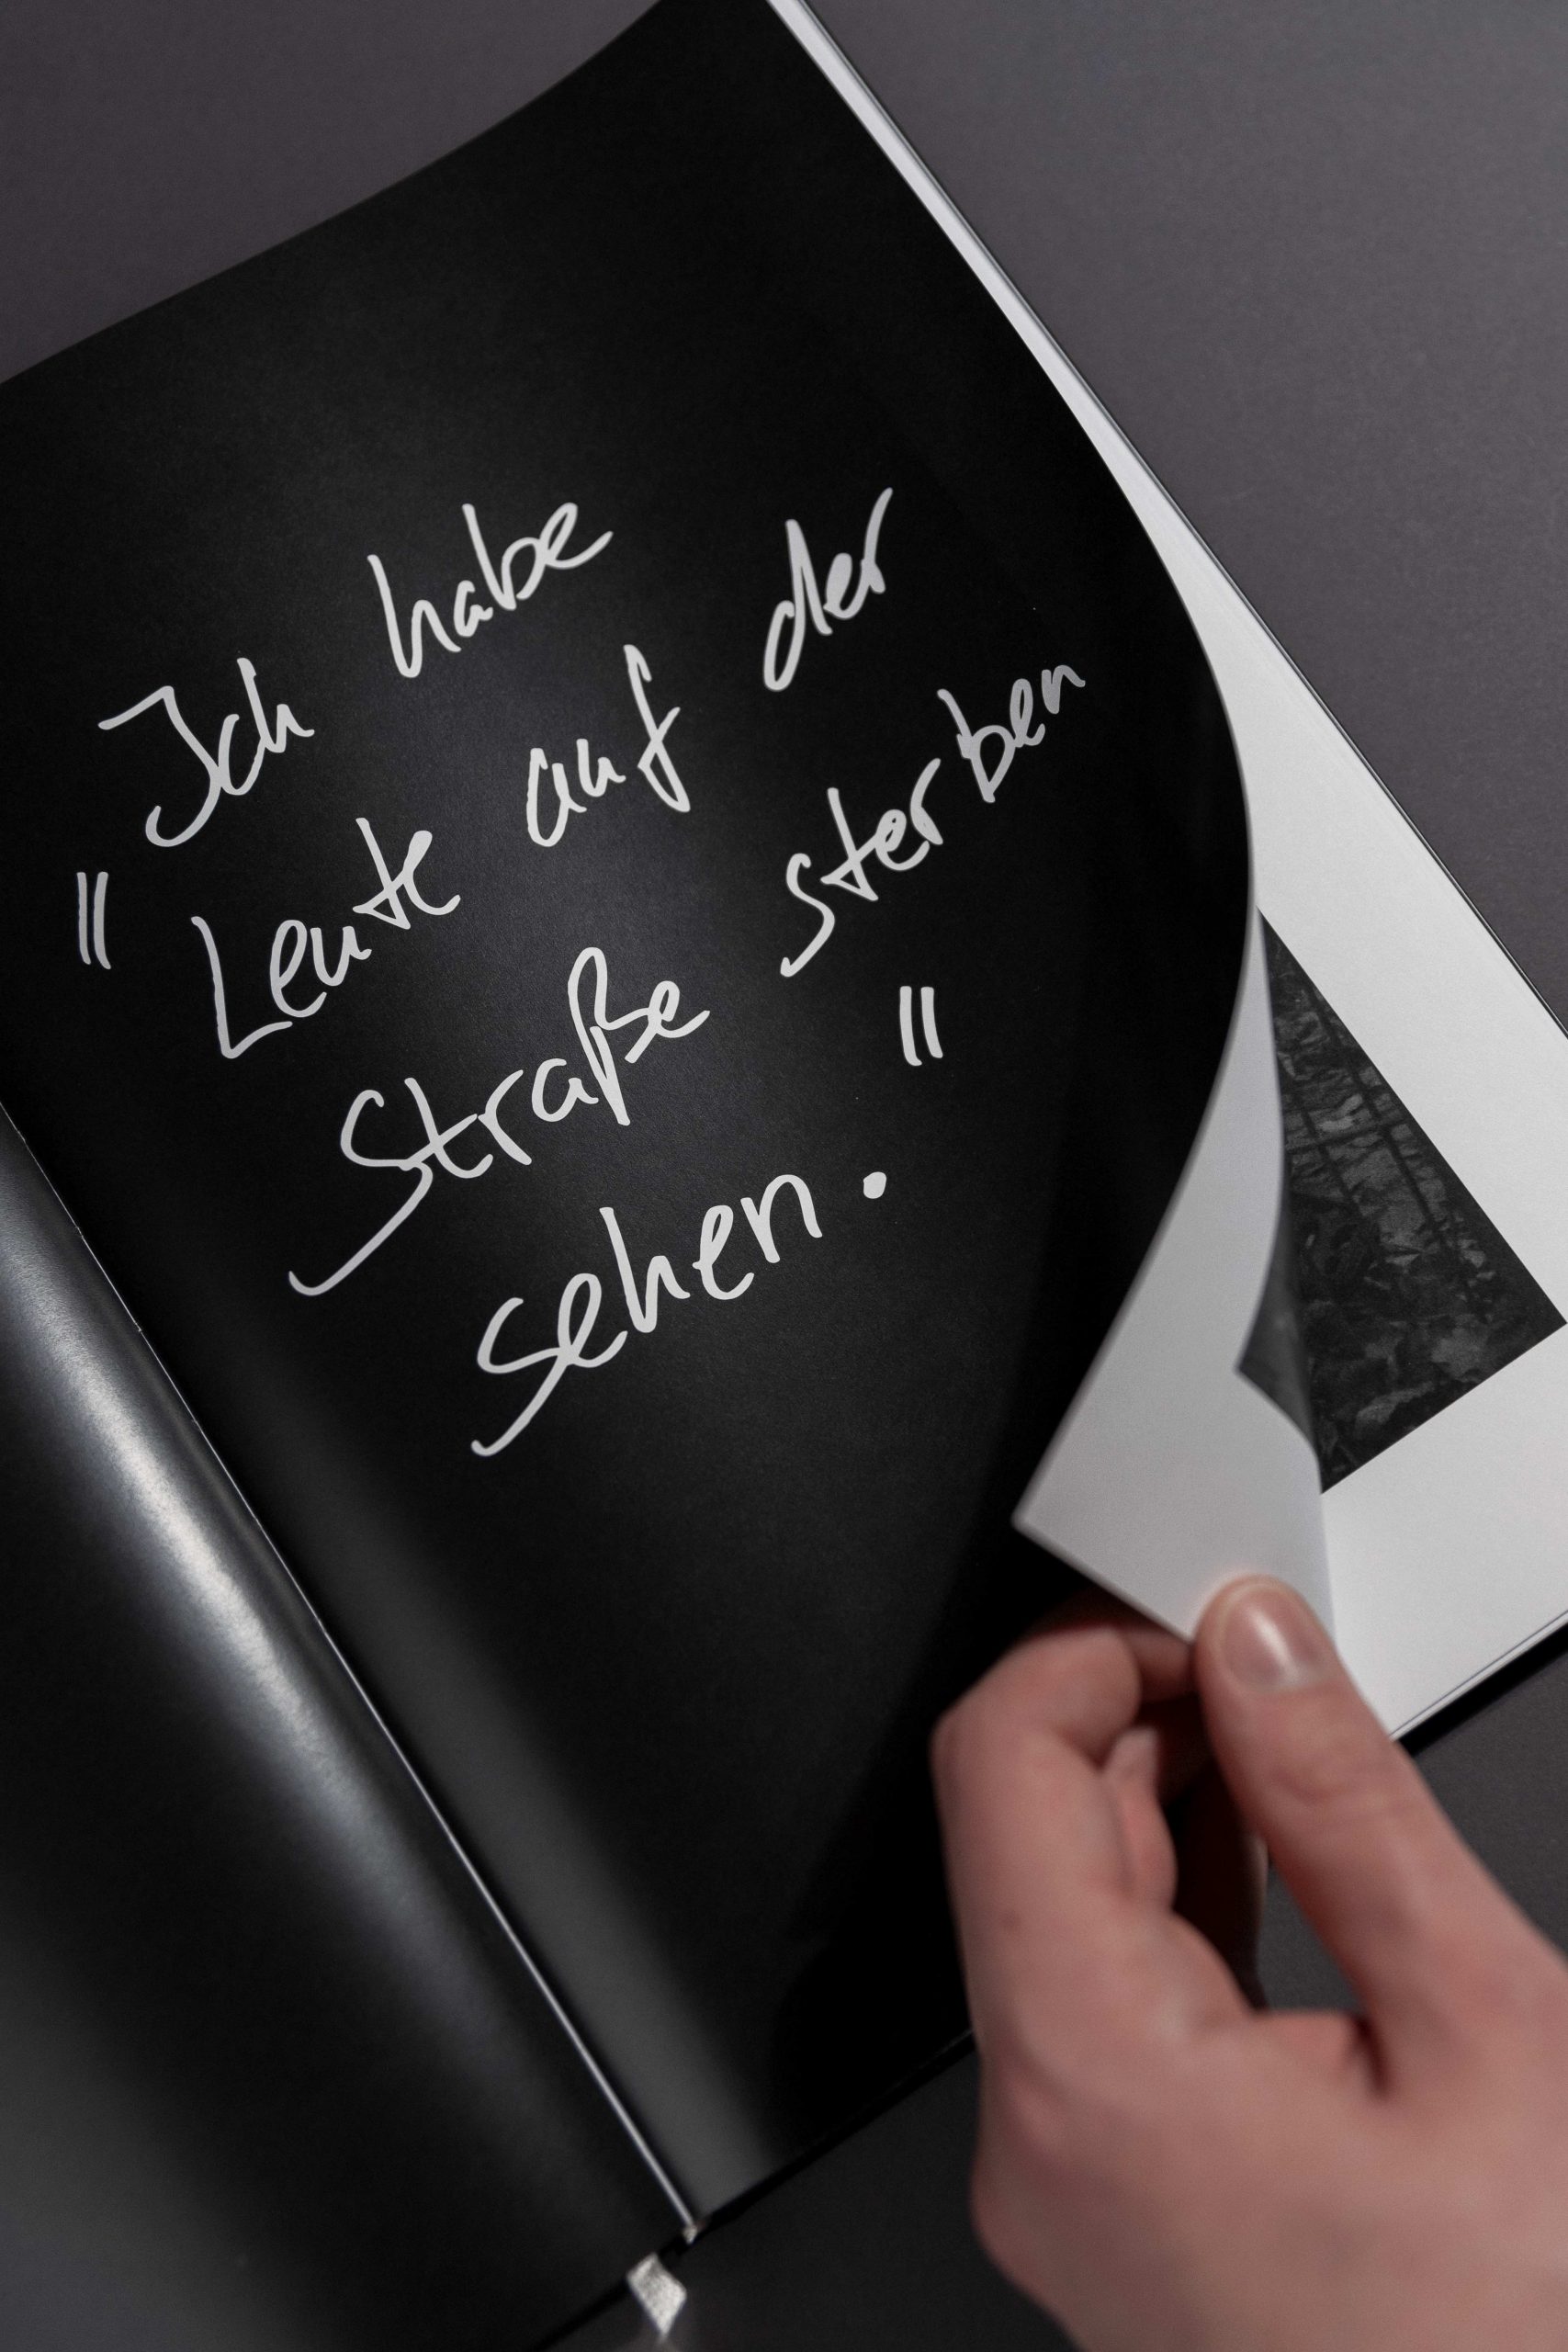 "Ich habe
Leute auf der
Straße sterben
sehen."